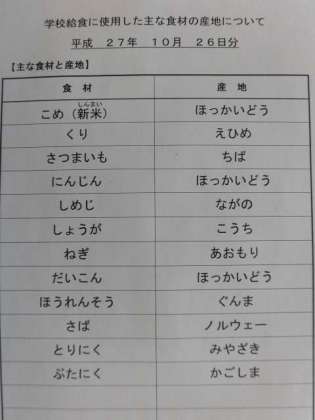 学校給食に使用した主な食材の産地について
平成　２７年　１０月　２６日分
【主な食材と産地】
食　材　産　地
しんまい
こめ（新米）　ほっかいどう
くり　えひめ
さつまいも　ちば
にんじん　ほっかいどう
しめじ　ながの
しょうが　こうち
ねぎ　あおもり
だいこん　ほっかいどう
ほうれんそう　ぐんま
さば　ノルウェー
とりにく　みやざき
ぶたにく　かごしま